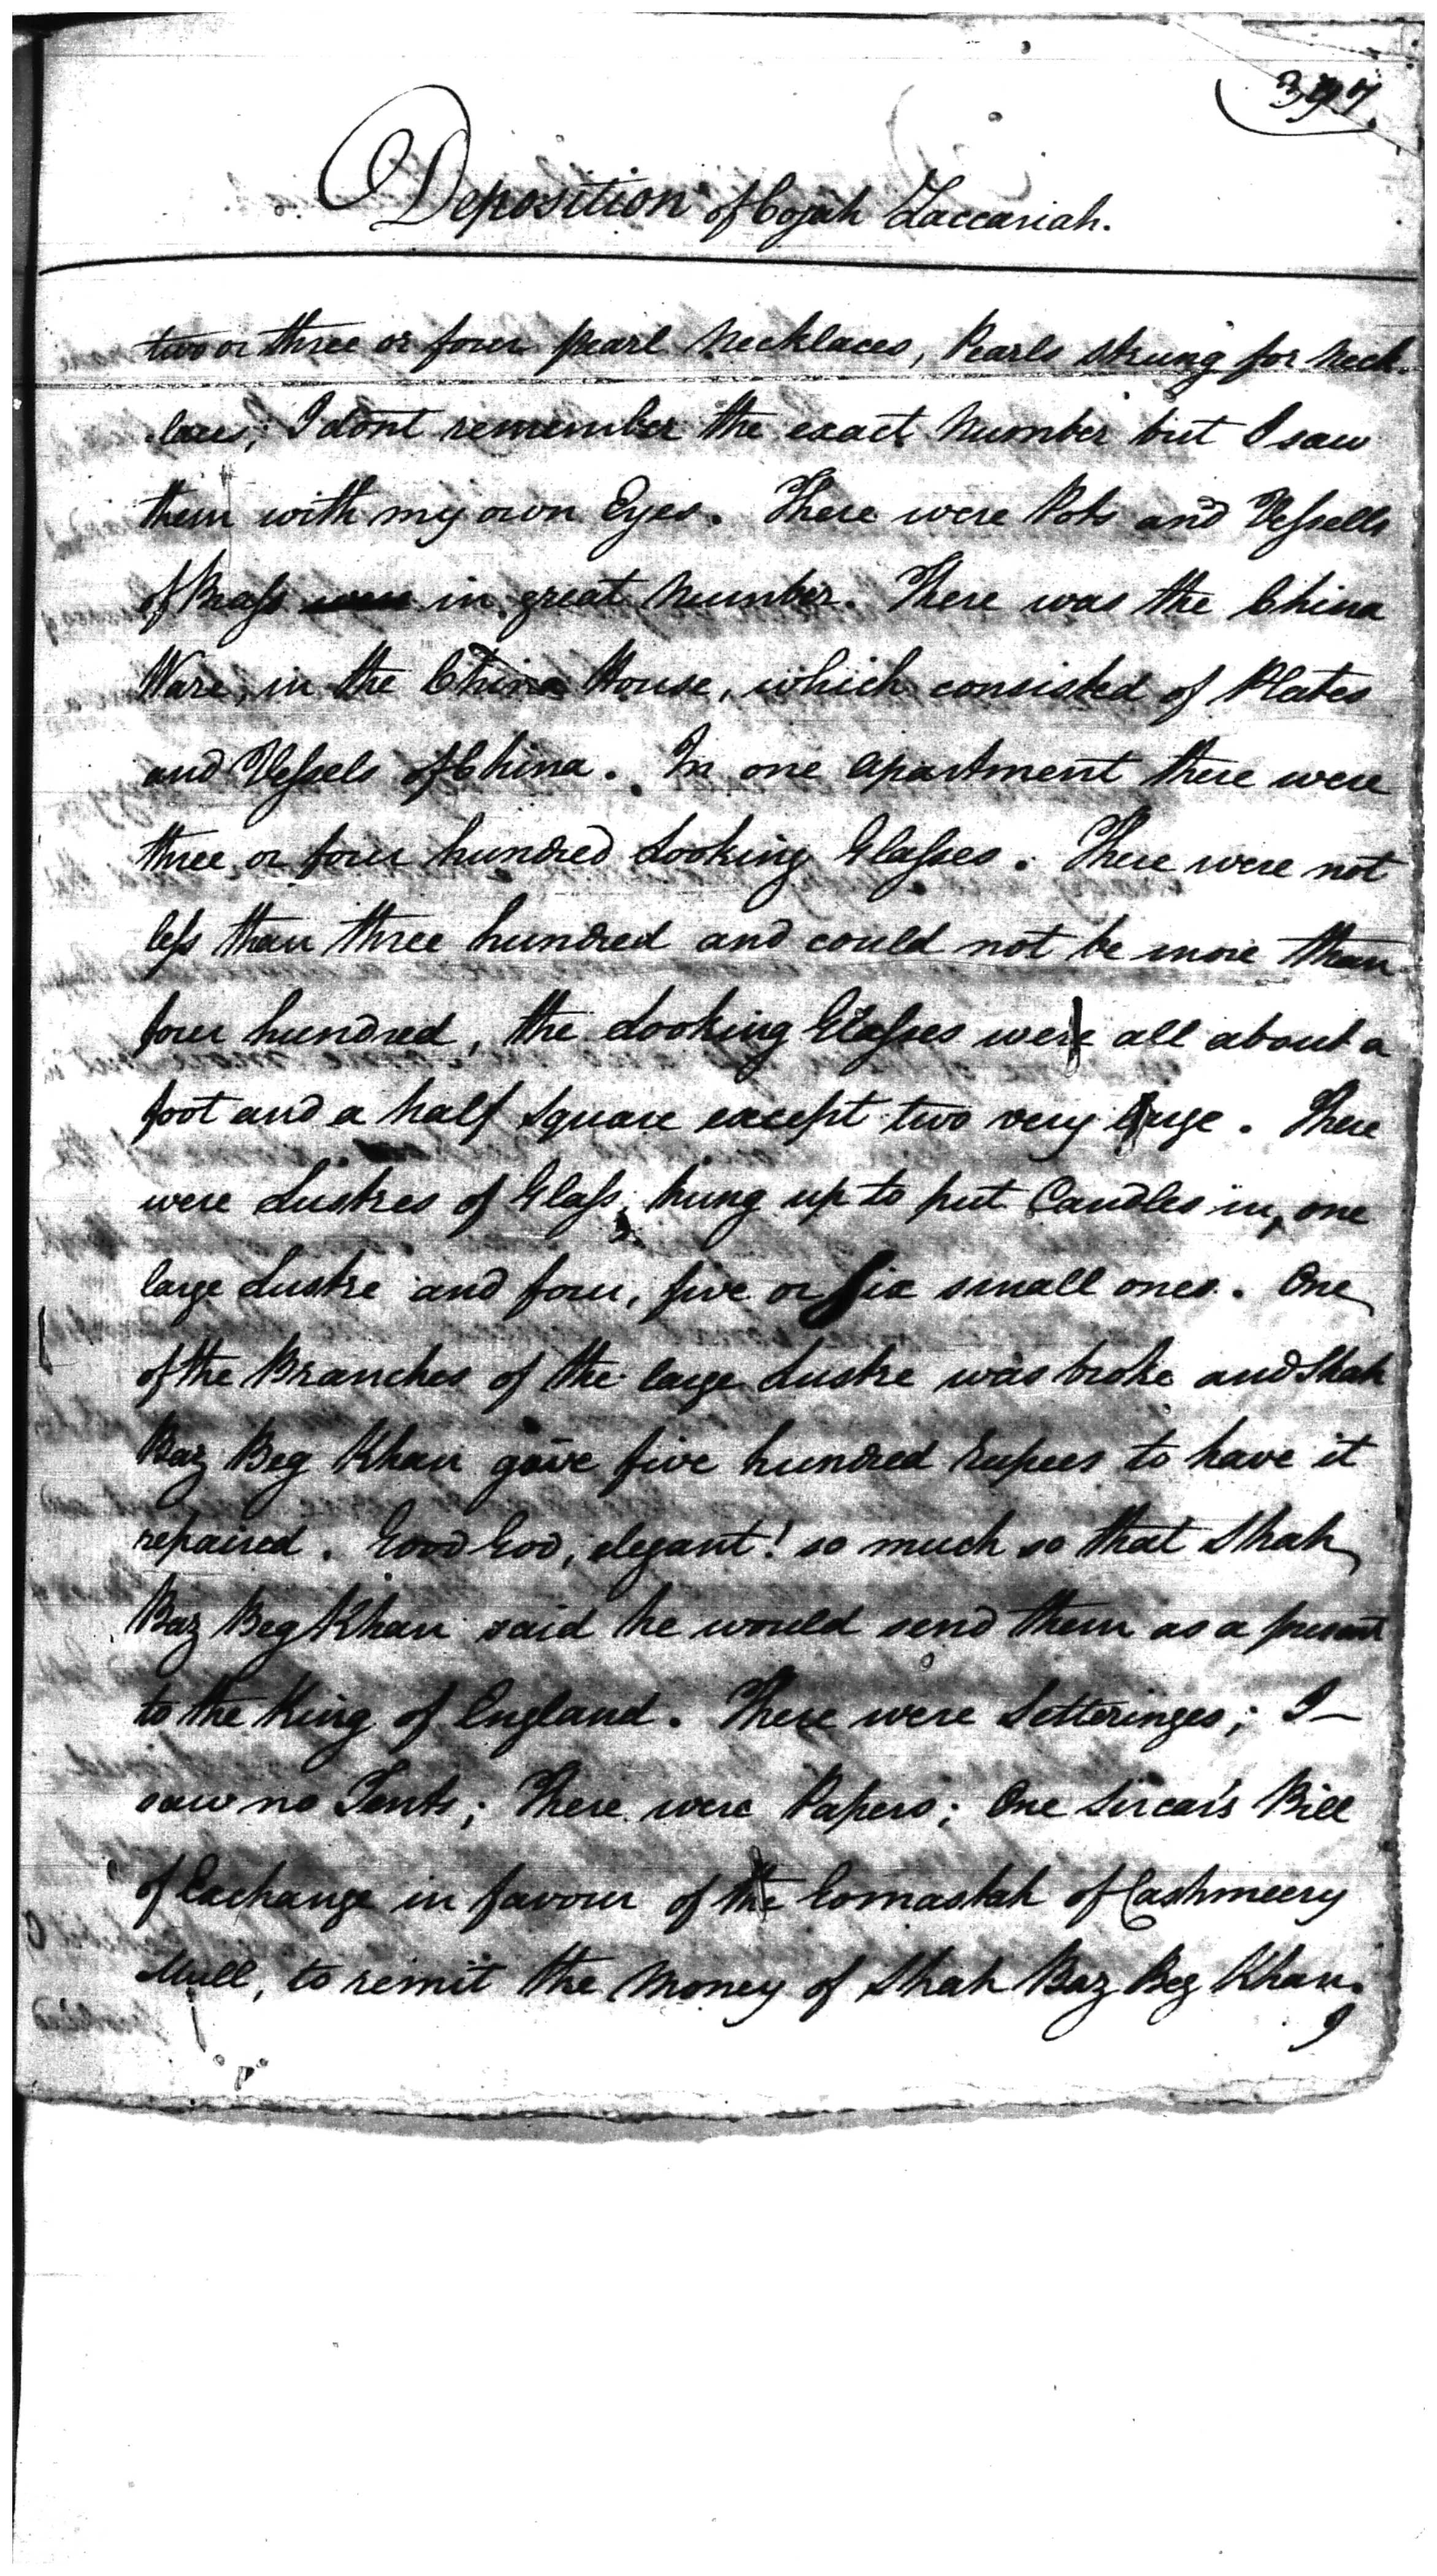 397.
Deposition of Cojah Zaccariah.
two or three or four pearl Necklaces, Pearls strung for Neck-
laces; I dont remember the exact Number but I saw
them with my own Eyes. There were Pots and Vessells
of Brass were in great Number. There was the China
Ware, in the China House, which consisted of Plates
and Vessels of China. In one apartment there were
three or four hundred Looking Glasses. There were not
less than three hundred and could not be more than
four hundred, the Looking Glasses were all about a
foot and a half square except two very large. There
were Lustres of Glass, hung up to put Candles in, one
large Lustre and four, five or Six small ones. One
of the Branches of the large Lustre was broke and Shah
Baz Beg Khan gave five hundred rupees to have it
repaired. Good God, elegant! so much so that Shah
Baz Beg Khan said he would send them as a present
to the King of England. There were Setteringes; I
saw no Tents; There were Papers; One Sircar's Bill
of Exchange in favour of the Gomastah of Cashmeery
Mull, to remit the Money of Shah Baz Beg Khan.
I